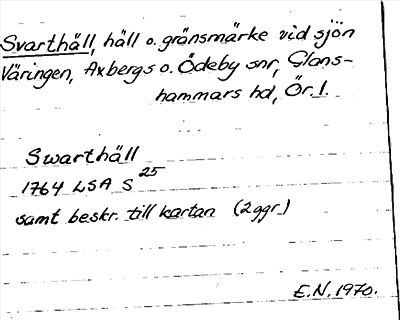 Svarthäll, häll o. gränsmärke vid sjön
Väringen, Axbergs o. Ödeby snr, Glans-
hammars hd, Ör. l.
Swarthäll
1764 LSA S 25
samt beskr. till kartan (2 ggr.)
E.N. 1970.